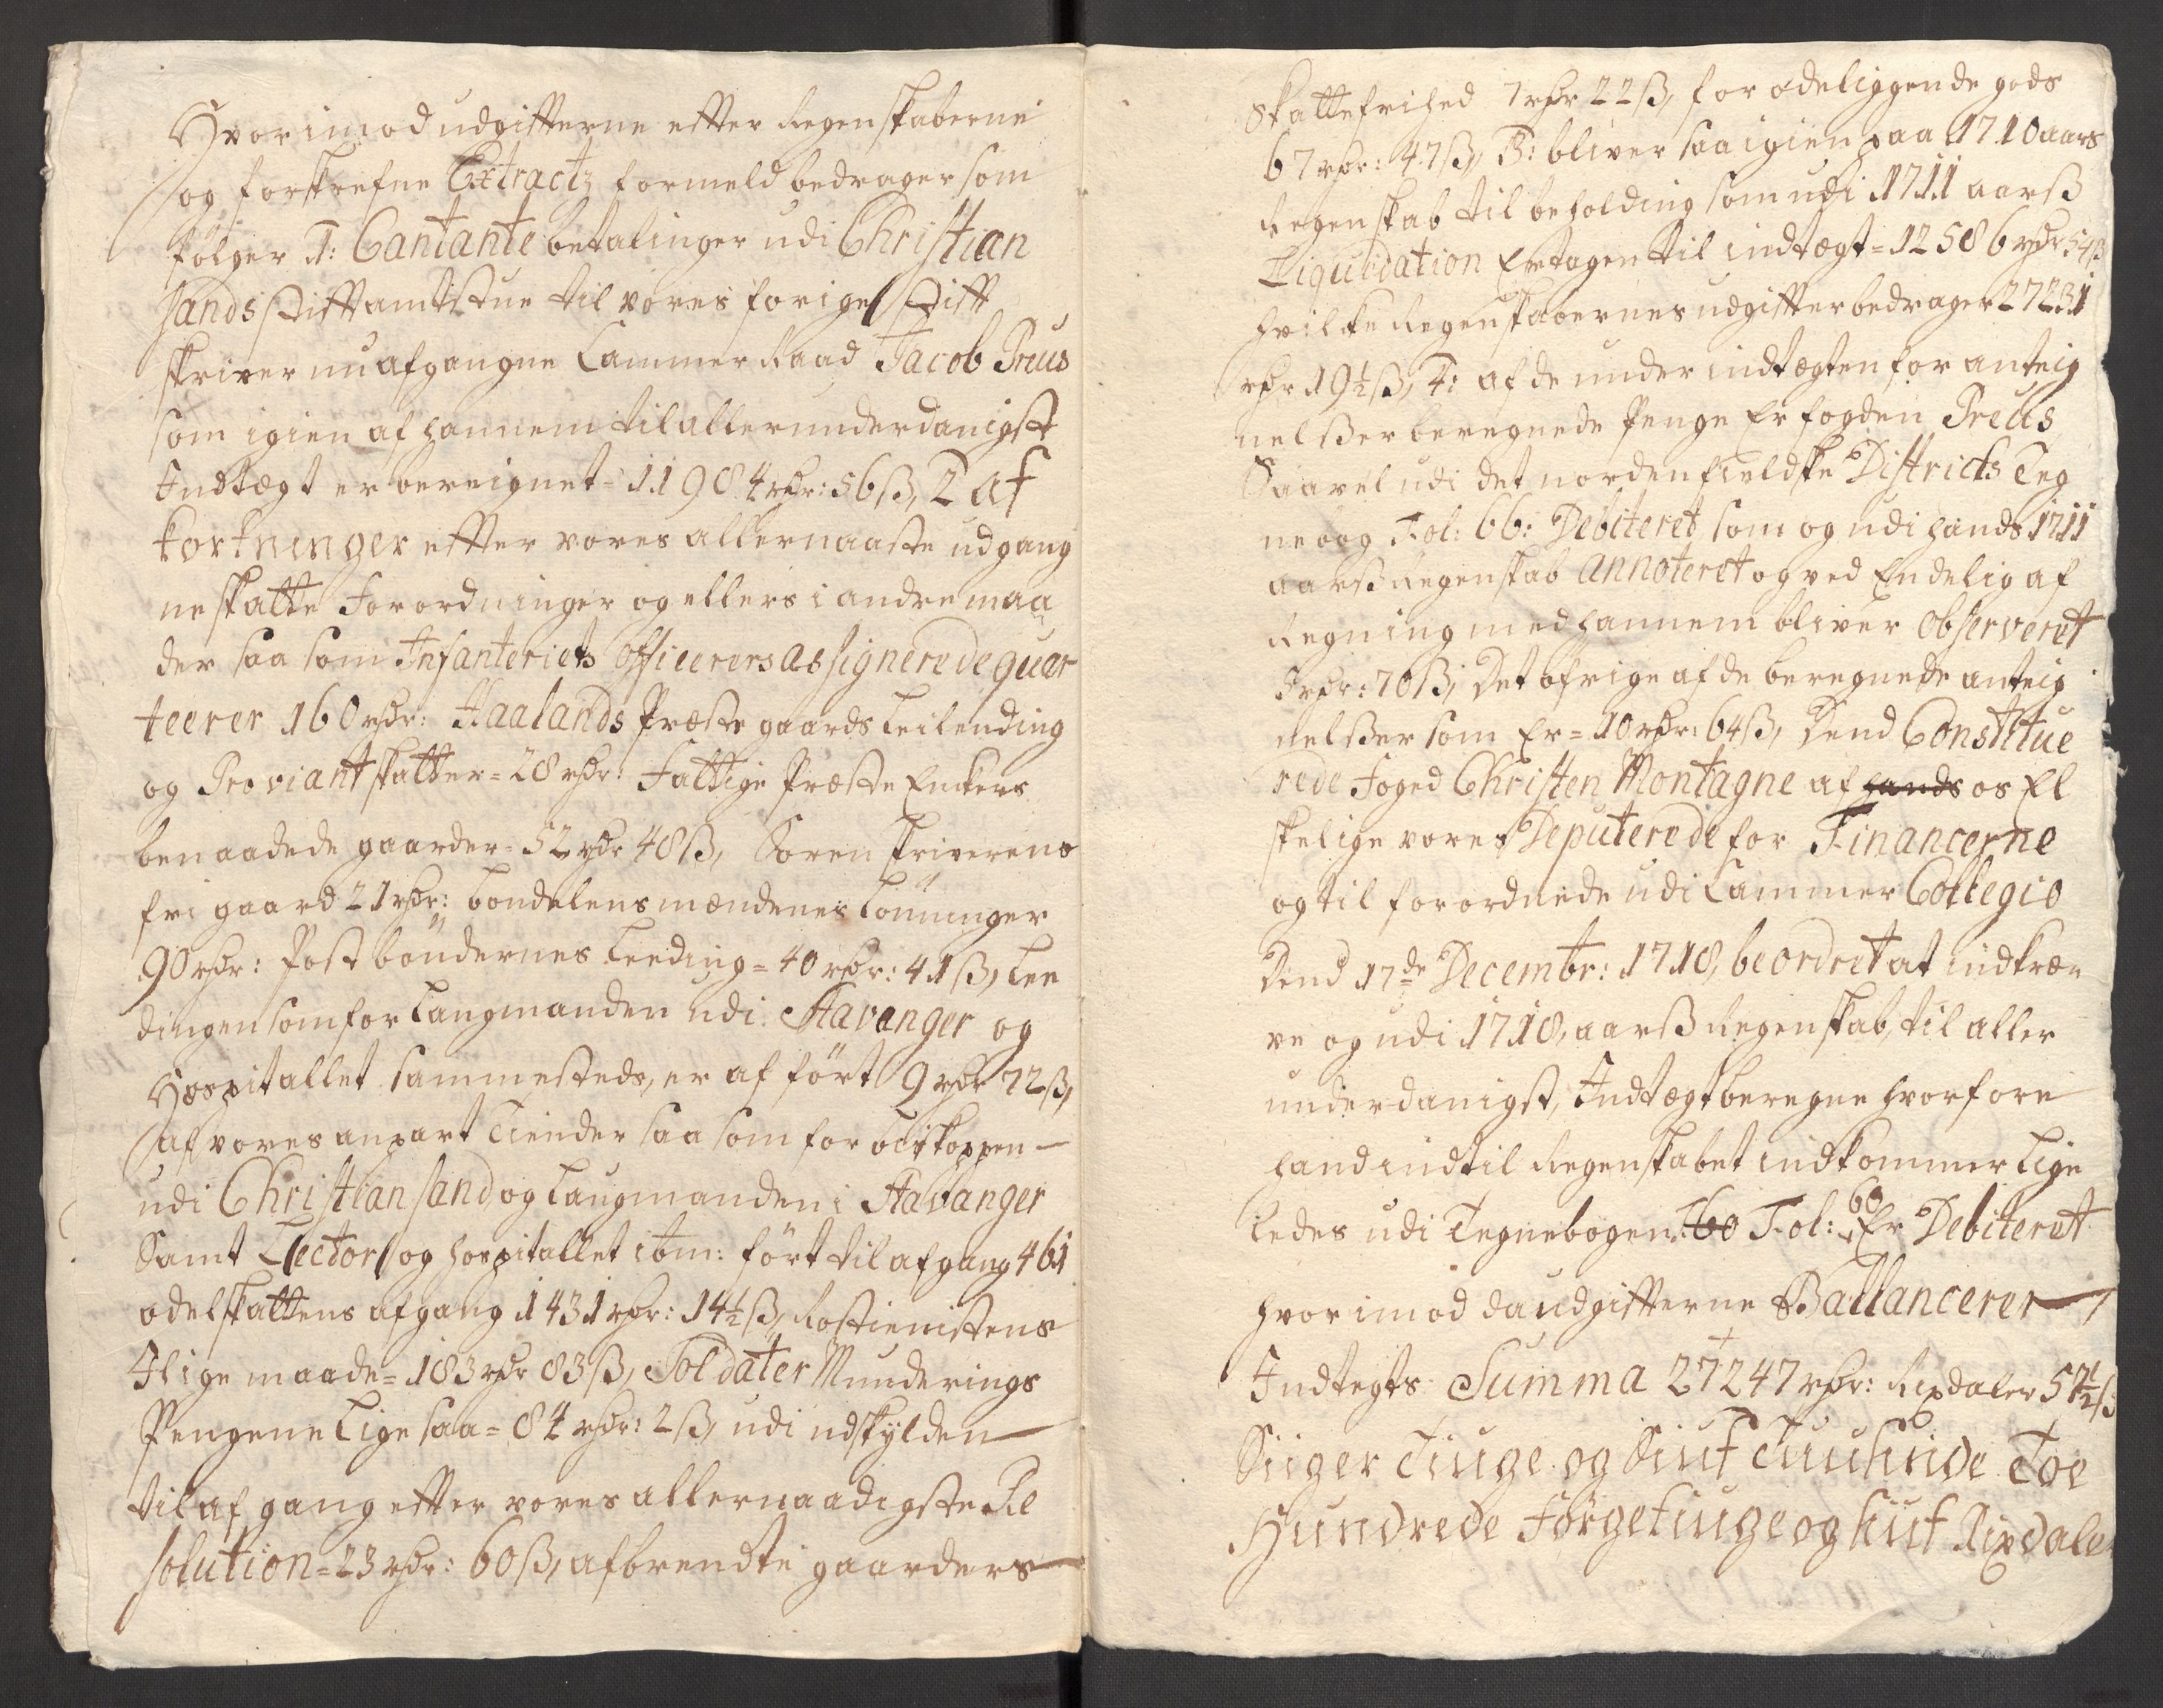 Hvorimod udgifterne efter Regenskaberne
og forskrefne Extractz formeld bedrager som
følger 1: Contante betalinger udi Christian
sands Stiftamtstue til vores forige Stift
skriver nu afgangne Cammer Raad Jacob Preus
som igien af hannem til allerunderdanigst
Indtægt er bereignet = 11984 rdr: 56 ß, 2 af
kortninger efter vores allernaaste udgang
ne skatte Forordninger og ellers i andre maa
der saa som Infanteriets officerers assignerede quar
teerer 160 rdr: Haalands Præste gaards Leilending
og Proviant skatter = 28 rdr: Fattige Præste Enkers
benaadede gaarder = 52 rdr 48 ß, Soren skriverens
fri gaard 21 rdr: bondelensmændenes Lönninger
90 rdr: Post böndernes Leeding = 40 rdr: 41 ß, Lee
dingen som for Laugmanden udi Stavanger og
Hospitallet sammesteds, er af fört 9 rdr 72 ß,
af vores anpart Tiender saa som for biskoppen
udi Christiansand og Laugmanden i Stavanger
Samt Lector og Hospitallet itm: fört til afgang 461
odelskattens afgang 1431 rdr: 14½ ß, Rostienistens
I lige maade = 183 rdr 83 ß, Soldater Munderings
Pengene Lige saa = 84 rdr: 2 ß, udi udskylden
til af gang efter vores allernaadigste Re
solution = 23 rdr: 60 ß, afbrendte gaarders
Skattefrihed 7 rdr 22 ß, for ödeliggende gods
67 rdr: 47 ß, 3: bliver saa igien paa 1710 aars
Regenskab til beholding som udi 1711 aarß
Liquidation Er tagen til indtægt = 12586 rdr 54 ß
hvilke Regenskabernes udgifter bedrager 27231
rdr 19½ ß, 4: af de under indtægten for anteig
nelßer beregnede Penge Er fogden Preus
Saavel udi det nordenfieldske Districts Teg
ne bog Fol: 66: Debiteret som og udi hands 1711
aarß Regenskab annoteret og ved Endelig af
Regning med hannem bliver observeret
5 rdr: 70 ß, Det öfrige af de beregnede anteig
nelßer som Er = 10 rdr: 64 ß, Dend Constitue
rede Foged Christen Montagne af hands os El
skelige vores Deputerede for Financerne
og til forordnede udi Cammer Collegio
Dend 17de Decembr: 1718, beordret at indkræ
ve og udi 1718, aarß Regenskab, til aller
underdanigst, Indtægt beregne hvorfore
hand indtil Regenskabet indkommer Lige
ledes udi Tegnebogen 60 Fol: 60 Er Debiteret
hvorimod da udgifterne Ballancerer
Indtegts Summa 27247 rdr: Rixdaler 57½ ß
Siiger Tiuge og Siuf Tuusinde Toe
Hundrede Förgetiuge og Siuf Rixdaler